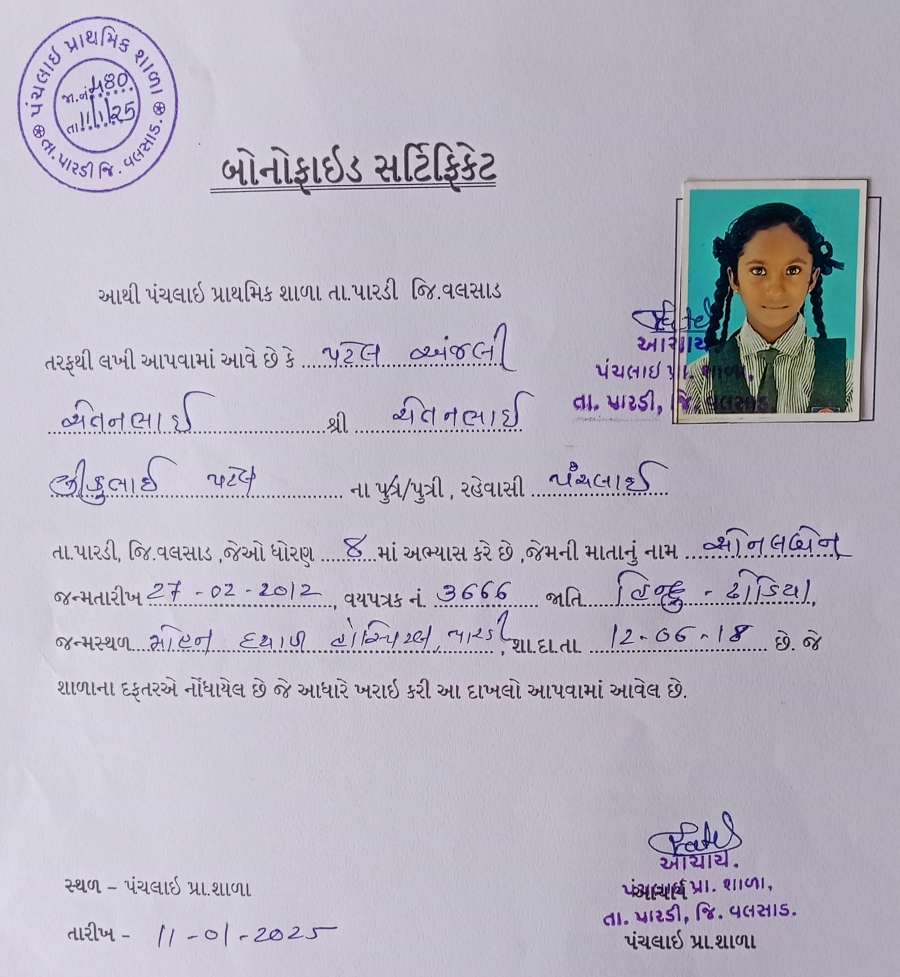 પંચલાઇ પ્રાથમિક શાળા
જા.નં. 480
તા. 11/1/25
તા. પારડી જિ. વલસાડ.
બોનોફાઇડ સર્ટિફિકેટ
આથી પંચલાઇ પ્રાથમિક શાળા તા.પારડી જિ.વલસાડ
તરફથી લખી આપવામાં આવે છે કે પટેલ અંજલી
ચેતનભાઈ શ્રી ચેતનભાઈ
ભીકુભાઈ પટેલ ના પુત્ર/પુત્રી , રહેવાસી પંચલાઈ
તા.પારડી, જિ.વલસાડ ,જેઓ ધોરણ ૭ માં અભ્યાસ કરે છે ,જેમની માતાનું નામ સોનલબેન
જન્મતારીખ 27-02-2012, વયપત્રક નં 3666 જાતિ હિન્દુ - ઢોડિયા,
જન્મસ્થળ મોહન દયાળ હોસ્પિટલ, પારડી, શા.દા.તા. 12-06-18 છે. જે
શાળાના દફતરએ નોંધાયેલ છે જે આધારે ખરાઇ કરી આ દાખલો આપવામાં આવેલ છે.
Patel
આચાર્ય
પંચલાઇ પ્રા. શાળા,
તા. પારડી, જિ. વલસાડ.
Patel
આચાર્ય.
પંચલાઇ પ્રા. શાળા,
આચાર્ય
તા. પારડી, જિ. વલસાડ.
પંચલાઇ પ્રા.શાળા
સ્થળ – પંચલાઇ પ્રા.શાળા
તારીખ - 11-01-2025